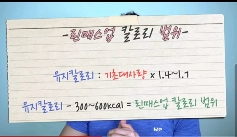 -린매스업 칼로리 범위-
유지칼로리 : 기초대사량 x 1.4~1.7
유지칼로리 - 300~600kcal = 린매스업 칼로리 범위